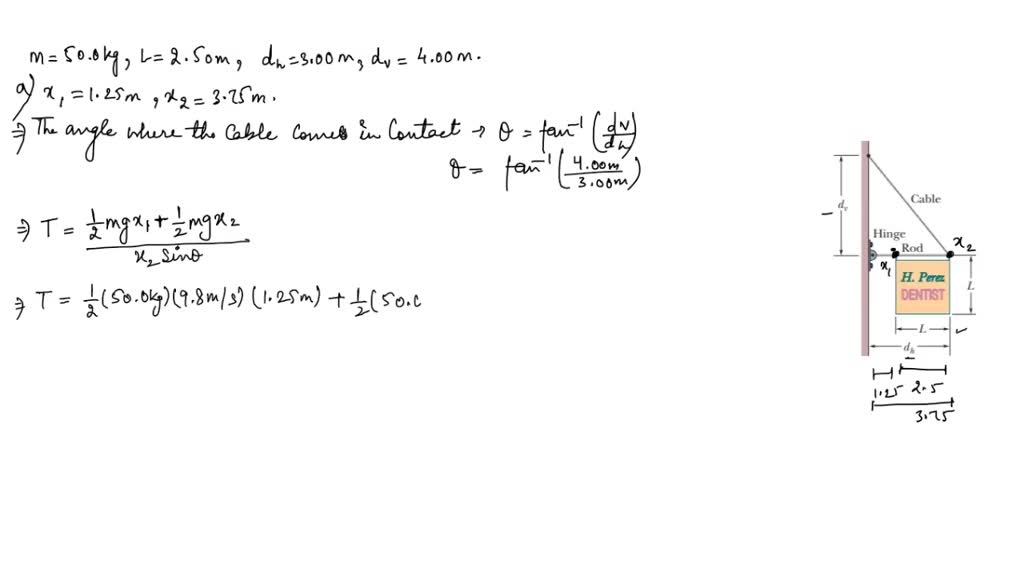 m = 50.0kg, L = 2.50m, dh = 3.00m, dv = 4.00m.
a) x1 = 1.25m, x2 = 3.75m.
⇒ The angle where the cable comes in contact → θ = tan⁻¹ (dv/dh)
θ = tan⁻¹ (4.00m/3.00m)
⇒ T = (½mgx1 + ½mgx2)/(x2 sinθ)
⇒ T = ½(50.0kg)(9.8m/s)(1.25m) + ½(50.0
Cable
dv
Hinge
Rod
x2
x1
H. Perez
DENTIST
L
L
dh
1.25 2.5
3.75